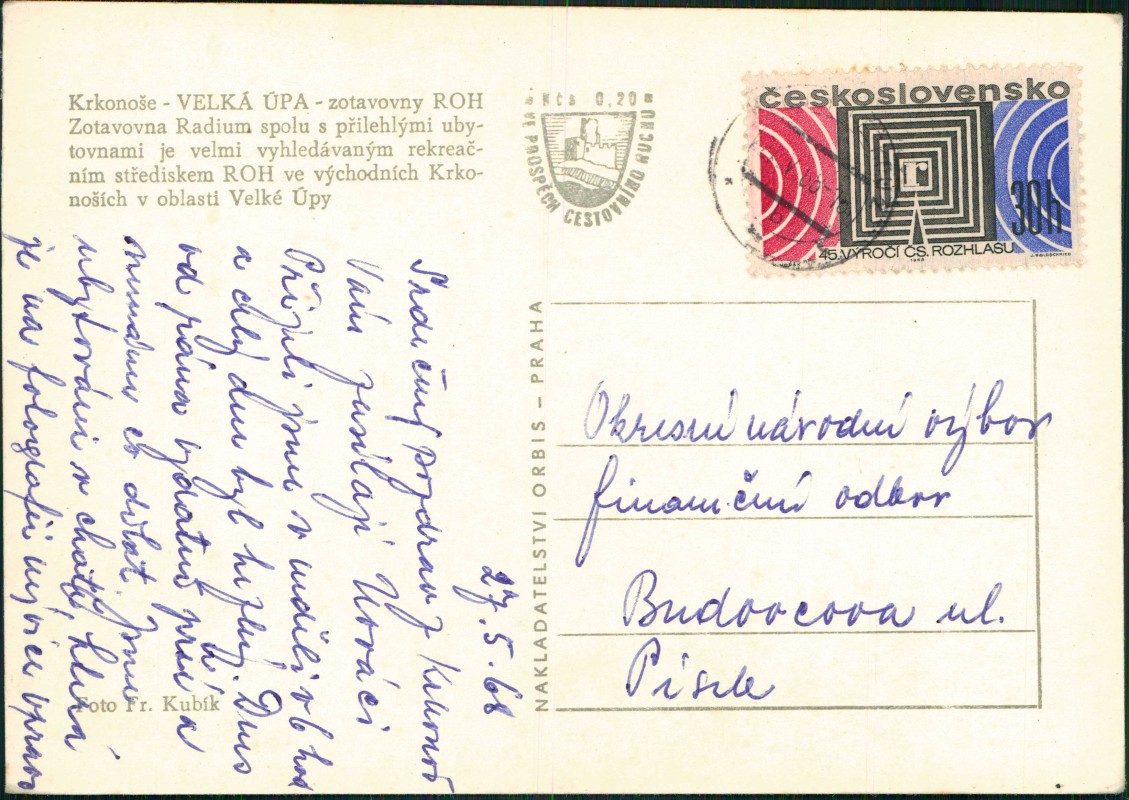 Krkonoše - VELKÁ ÚPA - zotavovny ROH
Zotavovna Radium spolu s přilehlými uby-
tovnami je velmi vyhledávaným rekreač-
ním střediskem ROH ve východních Krko-
noších v oblasti Velké Úpy
Kčs 0,20
VE PROSPĚCH CESTOVNÍHO RUCHU
československo
30h
45. VÝROČÍ ČS. ROZHLASU
1968
27. 5. 68
Srdečný pozdrav z Krkonoš
Vám zasílají
Přijeli jsme v neděli v 6 hod
a celý den byl hezký. Dnes
od rána vydatně prší a
ubytováni v chatě, která
je na fotografii nejvíce vpravo
Foto Fr. Kubík
NAKLADATELSTVÍ ORBIS - PRAHA
Okresní národní výbor
finanční odbor
Budovcova ul.
Písek